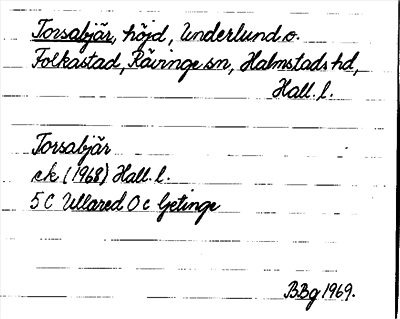 Torsabjär, höjd, Underlund o.
Folkastad, Rävinge sn, Halmstads hd,
Hall. l.
Torsabjär
ek (1968) Hall. l.
5 C Ullared O c Getinge
BBg 1969.